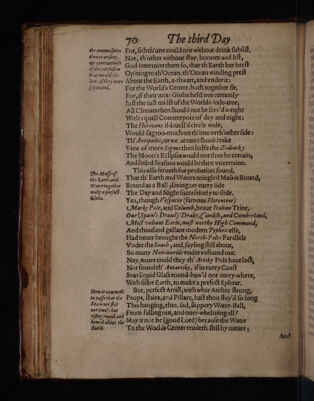 70 The third Day
the commodities
thence arising,
For, sith th'one could not without drink subsist,
Nor, th'other without stay, bottom and list,
God intermixt them so, that th'Earth her brest
Op'ning to th'Ocean, th'Ocean winding prest
About the Earth, a-thwart, and under it:
For the World's Center, both together fit.
For, if their mixt Globe held not certainly
Just the just midst of the Worlds Axle-tree,
All Climats then should not be serv'd a-right
With equall Counterpoiz of day and night:
The Horizons il-levell'd circle wide,
Would sag too-much on th'one or th'other side:
Th'Antipodes, or we, at once should take
View of more Signes then halfe the Zodiack:
The Moon's Eclipses would not then be certain,
And setled Seasons would be then uncertain.
The Masse of
the Earth and
Water together
make a perfect
Globe.
This also serveth for probation sound,
That th'Earth and Waters mingled Mass is Round,
Round as a Ball; seeing on every side
The Day and Night successively to slide.
Yea, though Vespucio (famous Florentine)
Mark Pole, and Columb, brave Italian Trine,
Our (Spain's Dread) Drake, Candish, and Cumberland,
Most valiant Earle, most worthy High Command,
And thousand gallant modern Typhis else,
Had never brought the North-Poles Parallele
Under the South; and, sayling still about,
So many New-worlds under us found out.
Nay, never could they th'Arctik Pole have lost,
Nor found th'Antarctik, if in every Coast
Seas liquid Glass round-bow'd not every-where,
With sister Earth, to make a perfect Sphear.
How it commeth
to passe that the
Sea is not flat
nor level: but
rising round and
bowed about the
Earth.
But, perfect Artist, with what Arches strong,
Props, staies, and Pillars, hast thou stay'd so long
This hanging, thin, sad, slippery Water-Ball,
From falling out, and over-whelming all?
May it not be (good Lord) because the Water
To the Worlds Center tendeth still by nature;
And